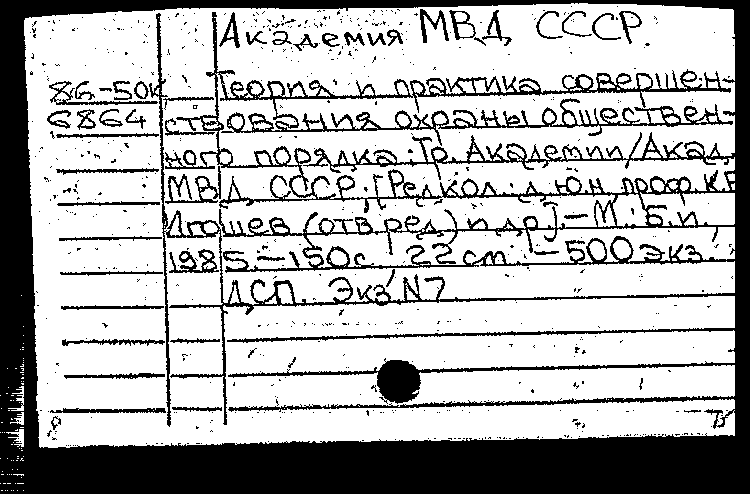 Академия МВД СССР.
86-50к Теория и практика совершен-
6864 ствования охраны обществен-
ного порядка: Тр. Академии/Акад.
МВД СССР; [Редкол.: д.ю.н., проф. К.Е.
Игошев (отв. ред.) и др.].—М.: Б.и.,
1985.—150с.; 22см.—500экз.
ДСП. Экз. N7.